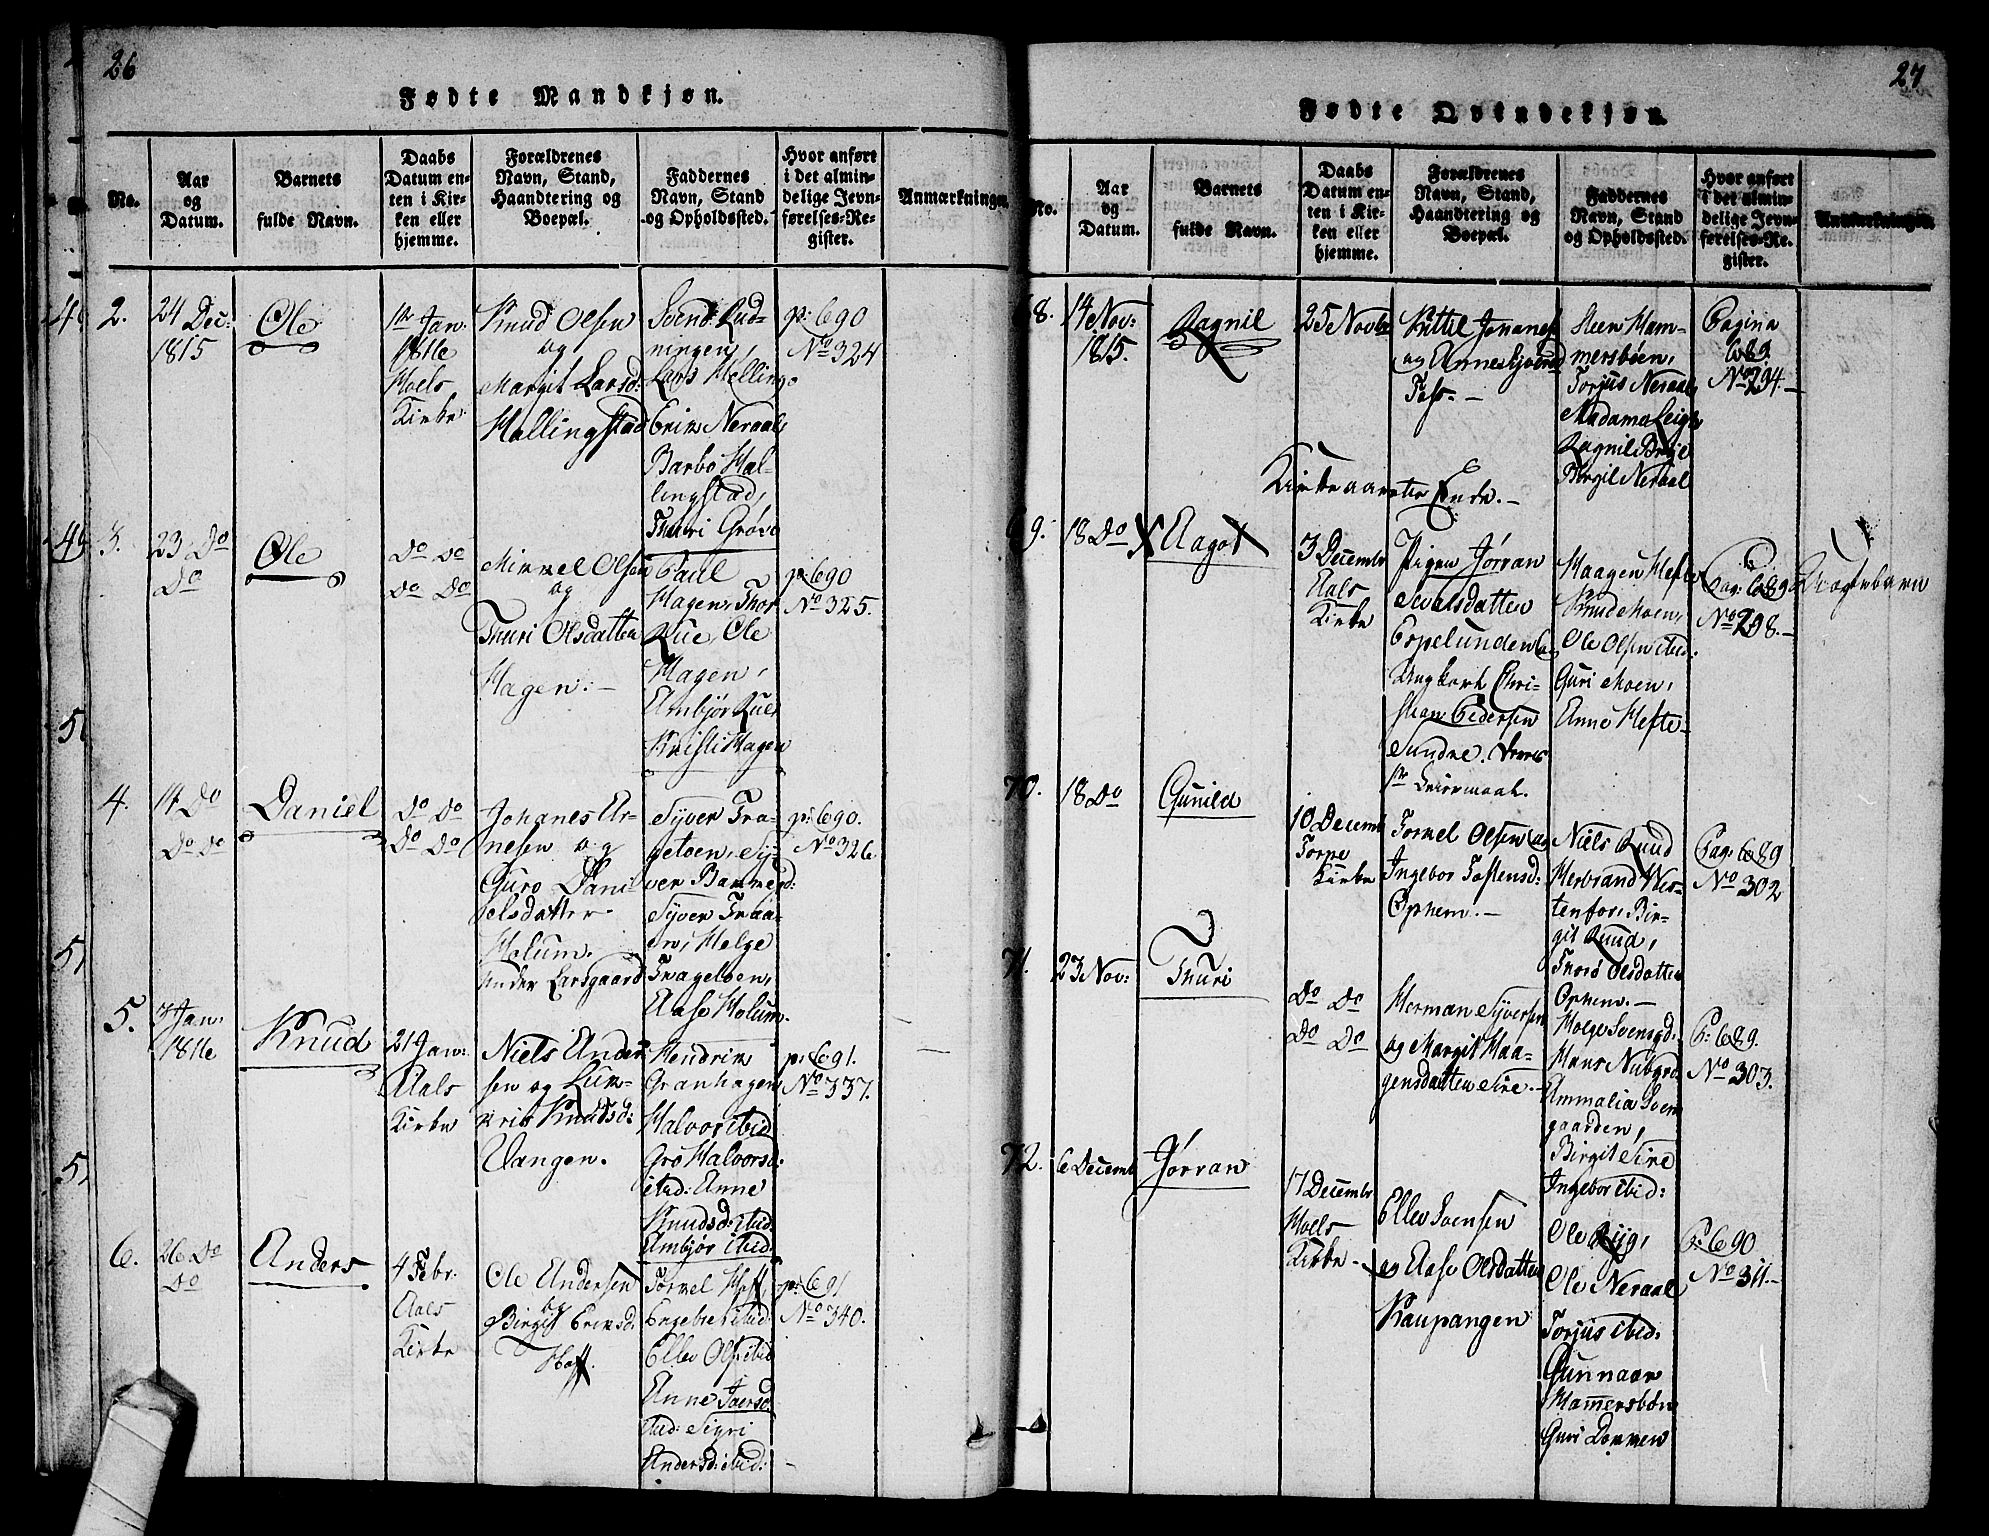 26
Fødte Mandkjøn.
No.
Aar
og
Datum.
Barnets
fulde Navn.
Daabs
Datum en-
ten i Kir-
ken eller
hjemme.
Forældrenes
Navn, Stand,
Haandtering og
Boepæl.
Faddernes
Navn, Stand
og Opholdssted.
Hvor anført
i det almin-
delige Jevn-
førelses-Re-
gister.
Anmærkninger.
2.
24 Dec:
1815
Ole
1ste Jan.
1816
Hoels
Kirke
Knud Olsen
og
Margit Larsd:
Hallingstad
Svend Lud-
ningen,
Lars Helling
Erik Neraal
Barbo Hal-
lingstad,
Thuri Grøvo
p: 690
No 324
3.
23 Do
Do
Ole
Do Do
Do Do
Mikkel Olsen
og
Thuri Olsdatten
Hagen.-
Paul
Hagen, Thor
Rue Ole
Hagen,
Ambjør Rue
Kristi Hagen
p: 690
No 325.
4.
14 Do
Do Do
Daniel
Do Do
Do Do
Johanes Ar-
nesen og
Guro Dani-
elsdatter
Holum.
under Larsgaard
Syver Tra-
getoen, Sy-
ver Bammegd:
Syver Traa-
en, Helge
Tragetoen,
Aase Holum.
p: 690.
No 326
5.
3 Jan.
1816
Knud
21 Jan:
Aals
Kirke
Niels Ander-
sen og Lun-
kris Knudsd:
Vangen.
Hendrik
Granhagen
Halvor ibid
Gro Halvorsd:
ibid: Anne
Knudsd: ibid
Ambjør ibid:
p: 691.
No 337.
6.
26 Do
Do
Anders
4 Febr.
Aals
Kirke
Ole Andersen
og
Birgit Eriksd:
Hoff.
Torkel Hoff,
Engebret ibid:
Ellev Ols: ibid
Anne Iversd:
ibid: Sigri
Andersd: ibid:
p: 691
No 340.
27
Fødte Qvindekjøn.
No.
Aar
og
Datum.
Barnets
fulde Navn.
Daabs
Datum en-
ten i Kir-
ken eller
hjemme.
Forældrenes
Navn, Stand,
Haandtering og
Boepæl.
Faddernes
Navn, Stand
og Opholdssted.
Hvor anført
i det almin-
delige Jevn-
førelses-Re-
gister.
Anmærkninger.
68.
14 Nov:
1815.
Ragnil
25 Novbr
Kittil Johanes
og Anne Syversd
Tess.-
Steen Ham-
mersbøen,
Torjus Neraal
Madame Leigh
Ragnil Brye
Birgit Neraal
Pagina
689.
No 294.-
Kirkeaarets Ende.-
69.
18 Do
Aagot
3 Decembr
Aals
Kirke
Pigen Jørran
Nielsdatten
Espelunden og
Ungkarl Chri-
stian Pedersen
Sundre. Deres
1ste Leiermaal.
Haagen Hefte
Knud Moen,
Ole Olsen ibid:
Guri Moen,
Anne Hefte-
Pag: 689
No 298.-
Uægtebarn
70.
18 Do
Gunild
10 Decemb
Torpe
Kirke
Torkel Olsen og
Ingebor Tostensd:
Ophem.-
Niels Ruud
Herbrand Wes-
tenfor, Bir-
git Ruud,
Thoro Olsdatten
Ophem.-
Pag: 689
No 302
71.
23 Nov:
Thuri
Do Do
Do Do
Herman Syversen
og Margit Haa-
gensdatten Sire.-
Holge Svensgd:
Hans Nubgrd
Ammalia Sven-
gaarden,
Birgit Sire
Ingebor ibid:
P: 689.
No 303.
72.
6 Decemb
Jørran
17 Decembr
Hoels
Kirke
Ellev Svensen
og Aase Olsdatten
Kaupangen
Ole Ryg,
Ole Neraal
Torjus ibid:
Gunnaar
Hammersbøn
Guri Lokken
P: 690
No 311.-